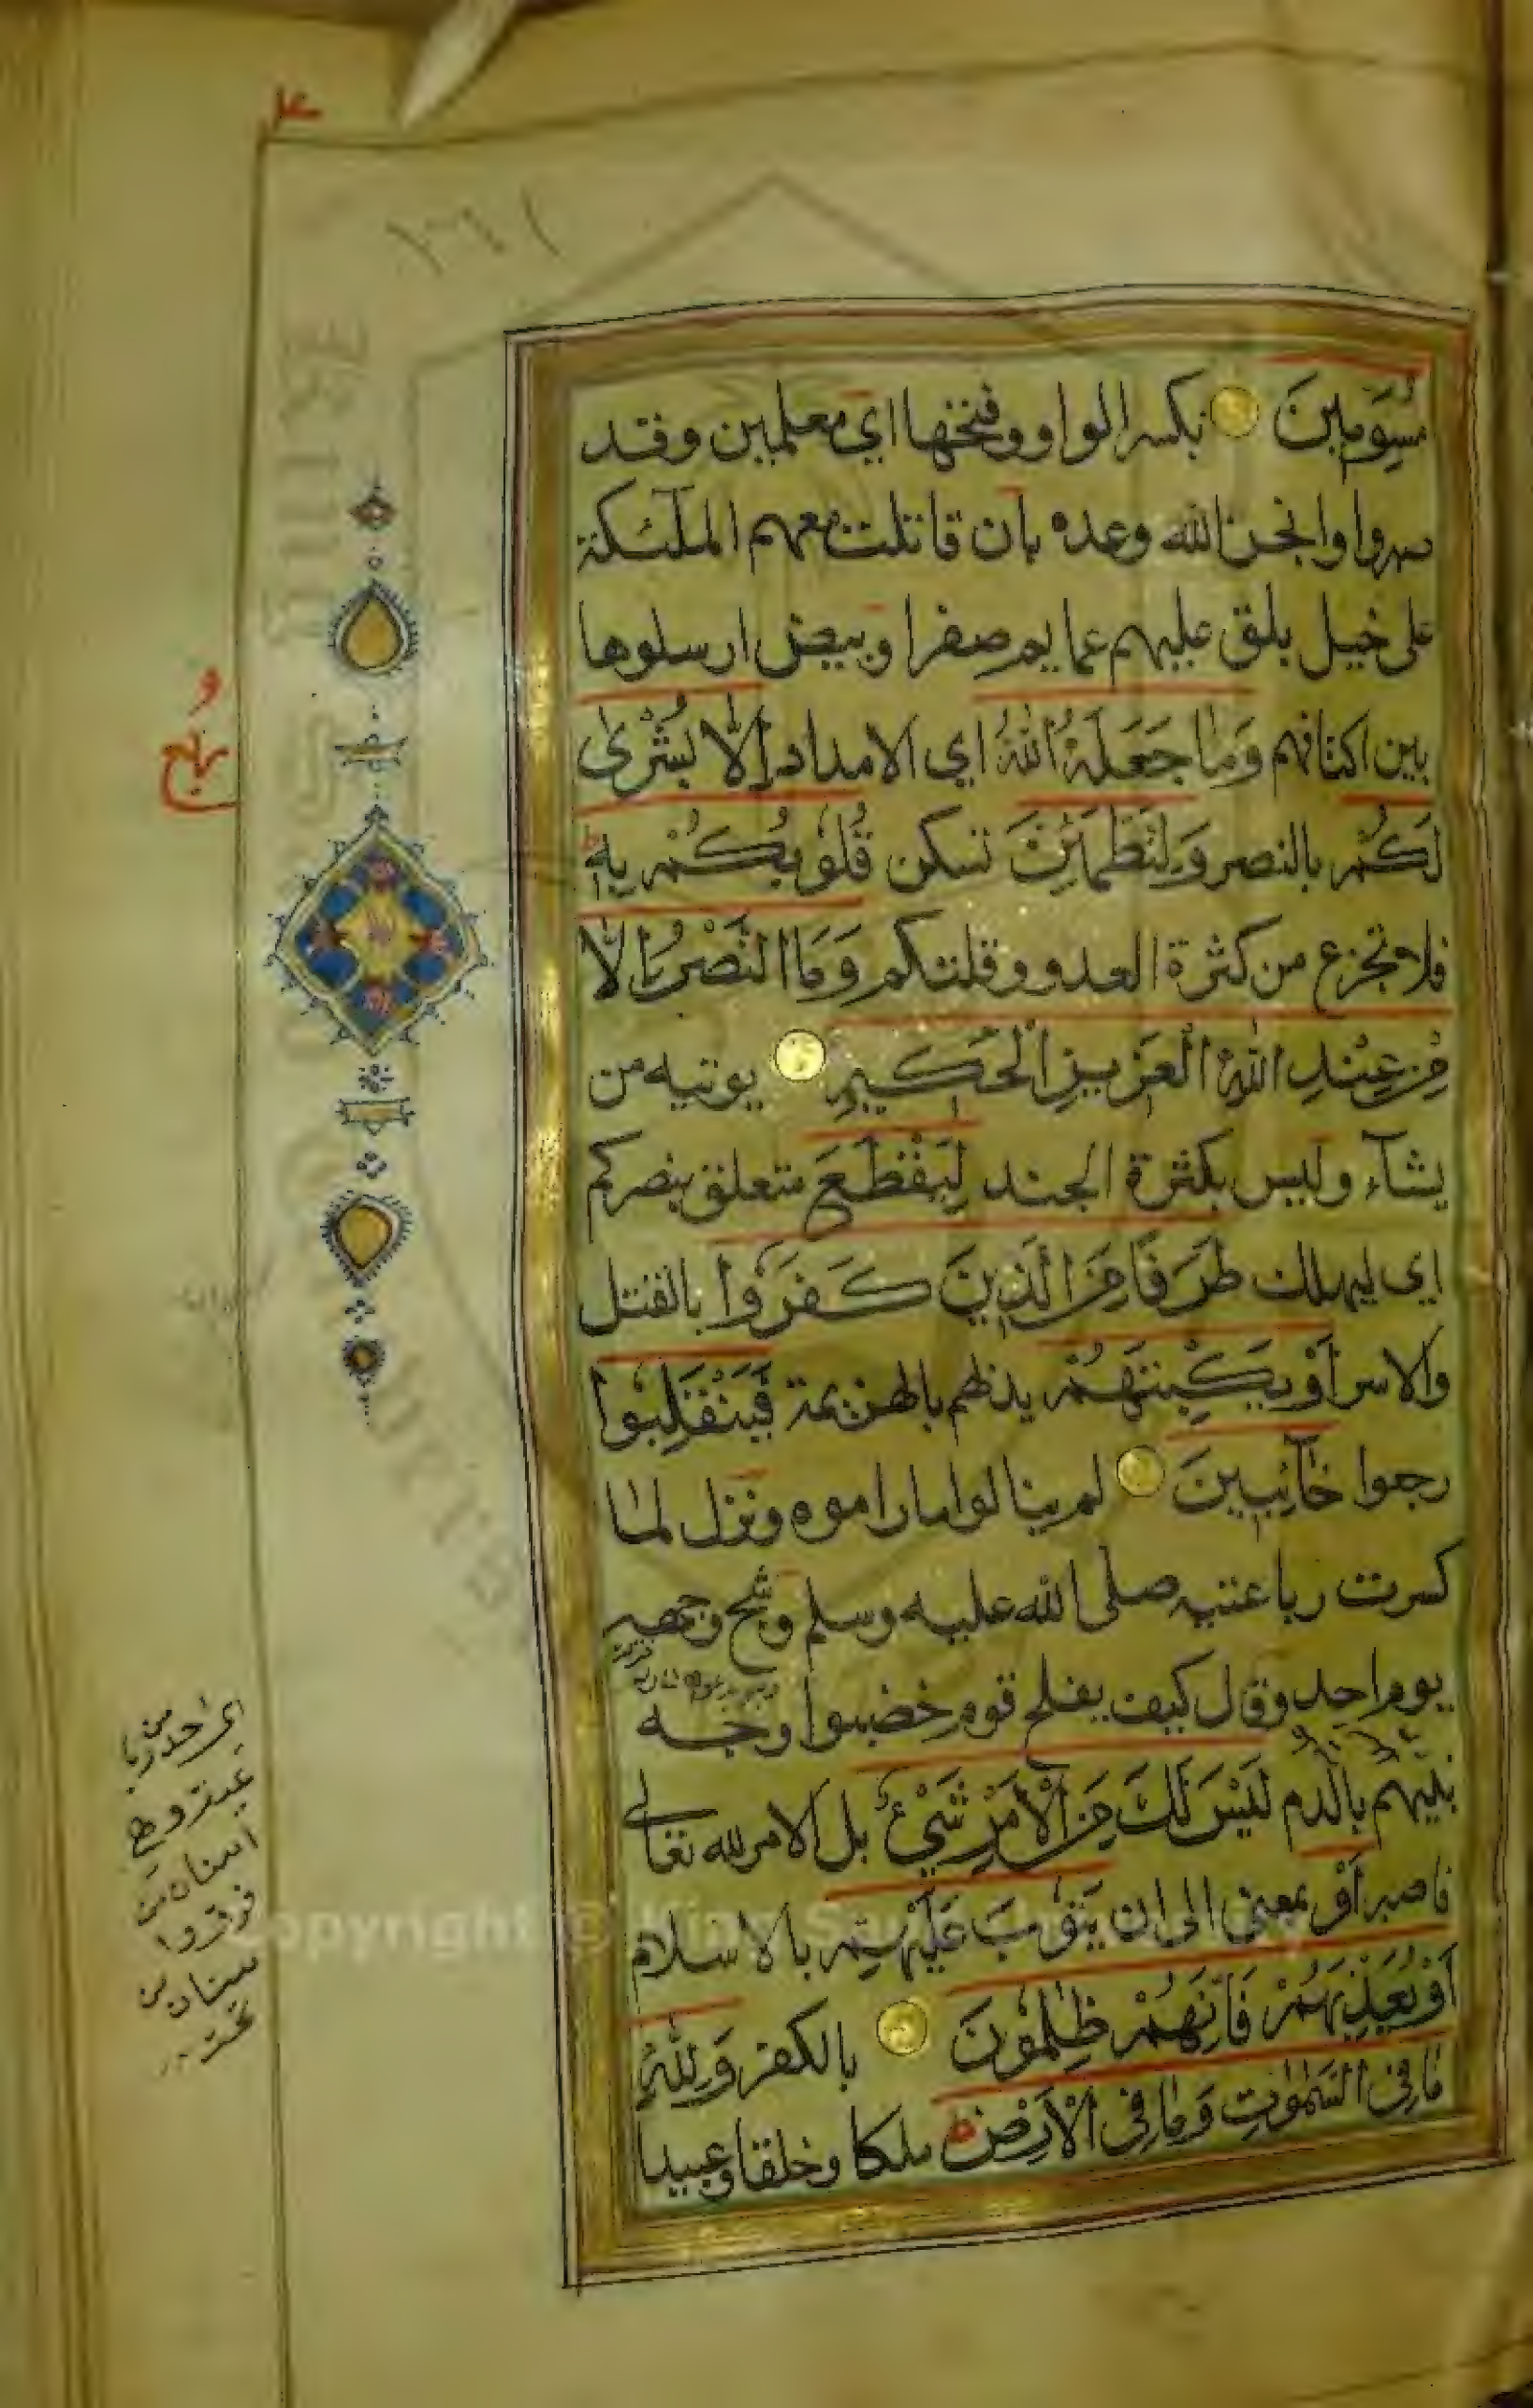 مُسَوِّمِينَ بكسر الواو وفتحها اي معلمين وقد
صبروا وانجز الله وعده بان قاتلت معهم الملٓئكة
على خيل بلق عليهم عمايم صفر او بيض ارسلوها
بين اكتافهم وَمَا جَعَلَهُ اللهُ اي الامداد إلّا بُشْرٰى
لَكُمْ بالنصر وَلِتَطْمَئِنَّ تسكن قُلُوْبُكُمْ بِهٖ ط
فلا تجزع من كثرة العدو وقلتكم وَمَا النَّصْرُ اِلَّا
مِنْ عِنْدِ اللّٰهِ الْعَزِيزِ الْحَكِيمِ يوتيه من
يشآء وليس بكثرة الجند لِيَقْطَعَ متعلق بنصركم
اي ليهلك طَرَفًا مِّنَ الَّذِينَ كَفَرُوْا بالقتل
والاسر أَوْ يَكْبِتَهُمْ يذلهم بالهزيمة فَيَنْقَلِبُوْا
رجعوا خَآئِبِينَ لم ينالوا ما راموه ونزل لما
كسرت رباعيته صلى الله عليه وسلم وشج وجهه
يوم احد وقال كيف يفلح قوم خضبوا وجه
نبيّهم بالدم لَيْسَ لَكَ مِنَ الْأَمْرِ شَيْءٌ بل الامر لله تعالى
فاصبر أَوْ بمعنى الى ان يَتُوْبَ عَلَيْهِمْ بالاسلام
أَوْ يُعَذِّبَهُمْ فَاِنَّهُمْ ظٰلِمُوْنَ بالكفر وَلِلّٰهِ
مَا فِي السَّمٰوٰتِ وَمَا فِي الْاَرْضِ ط ملكا وخلقا وعبيدا
١٦١
Copyright © King Saud University